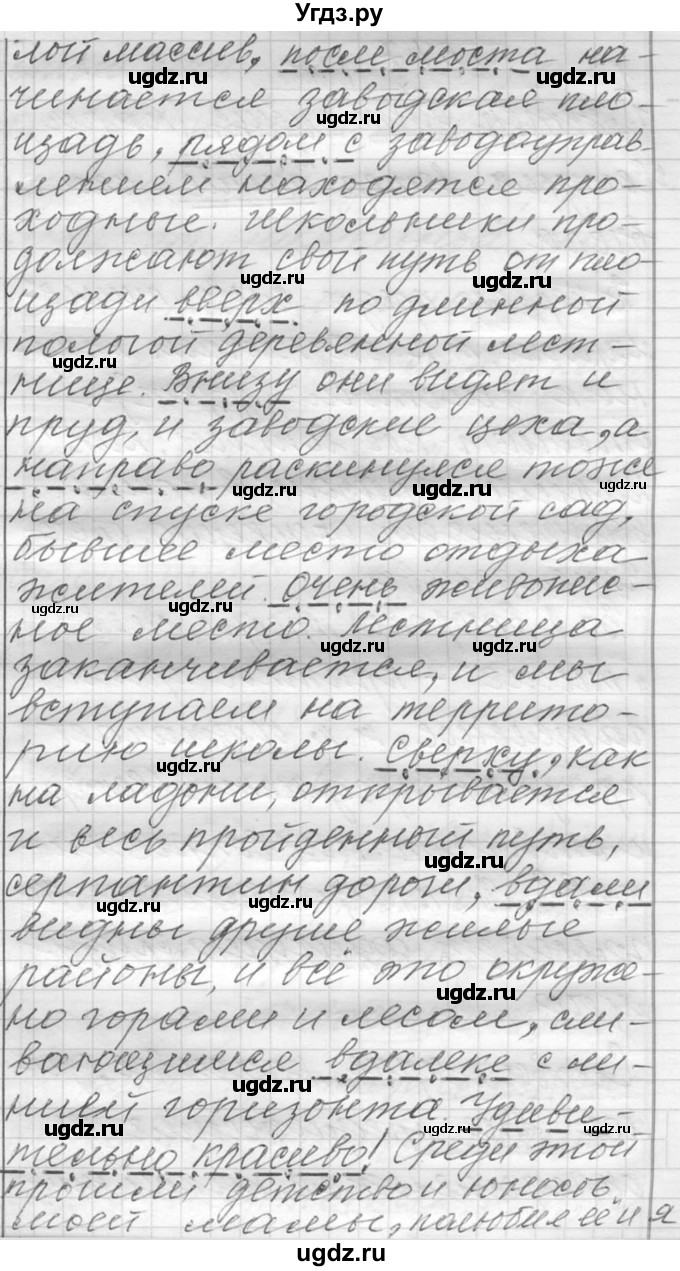 Угдз.ру
лой массив, после моста на-
чинается заводская пло-
щадь, рядом с заводоуправ-
лением находятся про-
ходные. Школьники про-
должают свой путь от пло-
щади вверх по длинной
пологой деревянной лест-
нице. Внизу они видят и
пруд, и заводские цеха, а
направо раскинулся тоже
на спуске городской сад,
бывшее место отдыха
жителей. Очень живопис-
ное место. Лестница
заканчивается, и мы
вступаем на террито-
рию школы. Сверху, как
на ладони, открывается
и весь пройденный путь,
серпантин дороги, вдали
видны другие жилые
районы, и всё это окруже-
но горами и лесом, сли-
вающимися вдалеке с ли-
нией горизонта. Удиви-
тельно красиво! Среди этой
прошли детство и юность
моей мамы, полюбил её и я
ugdz.ru